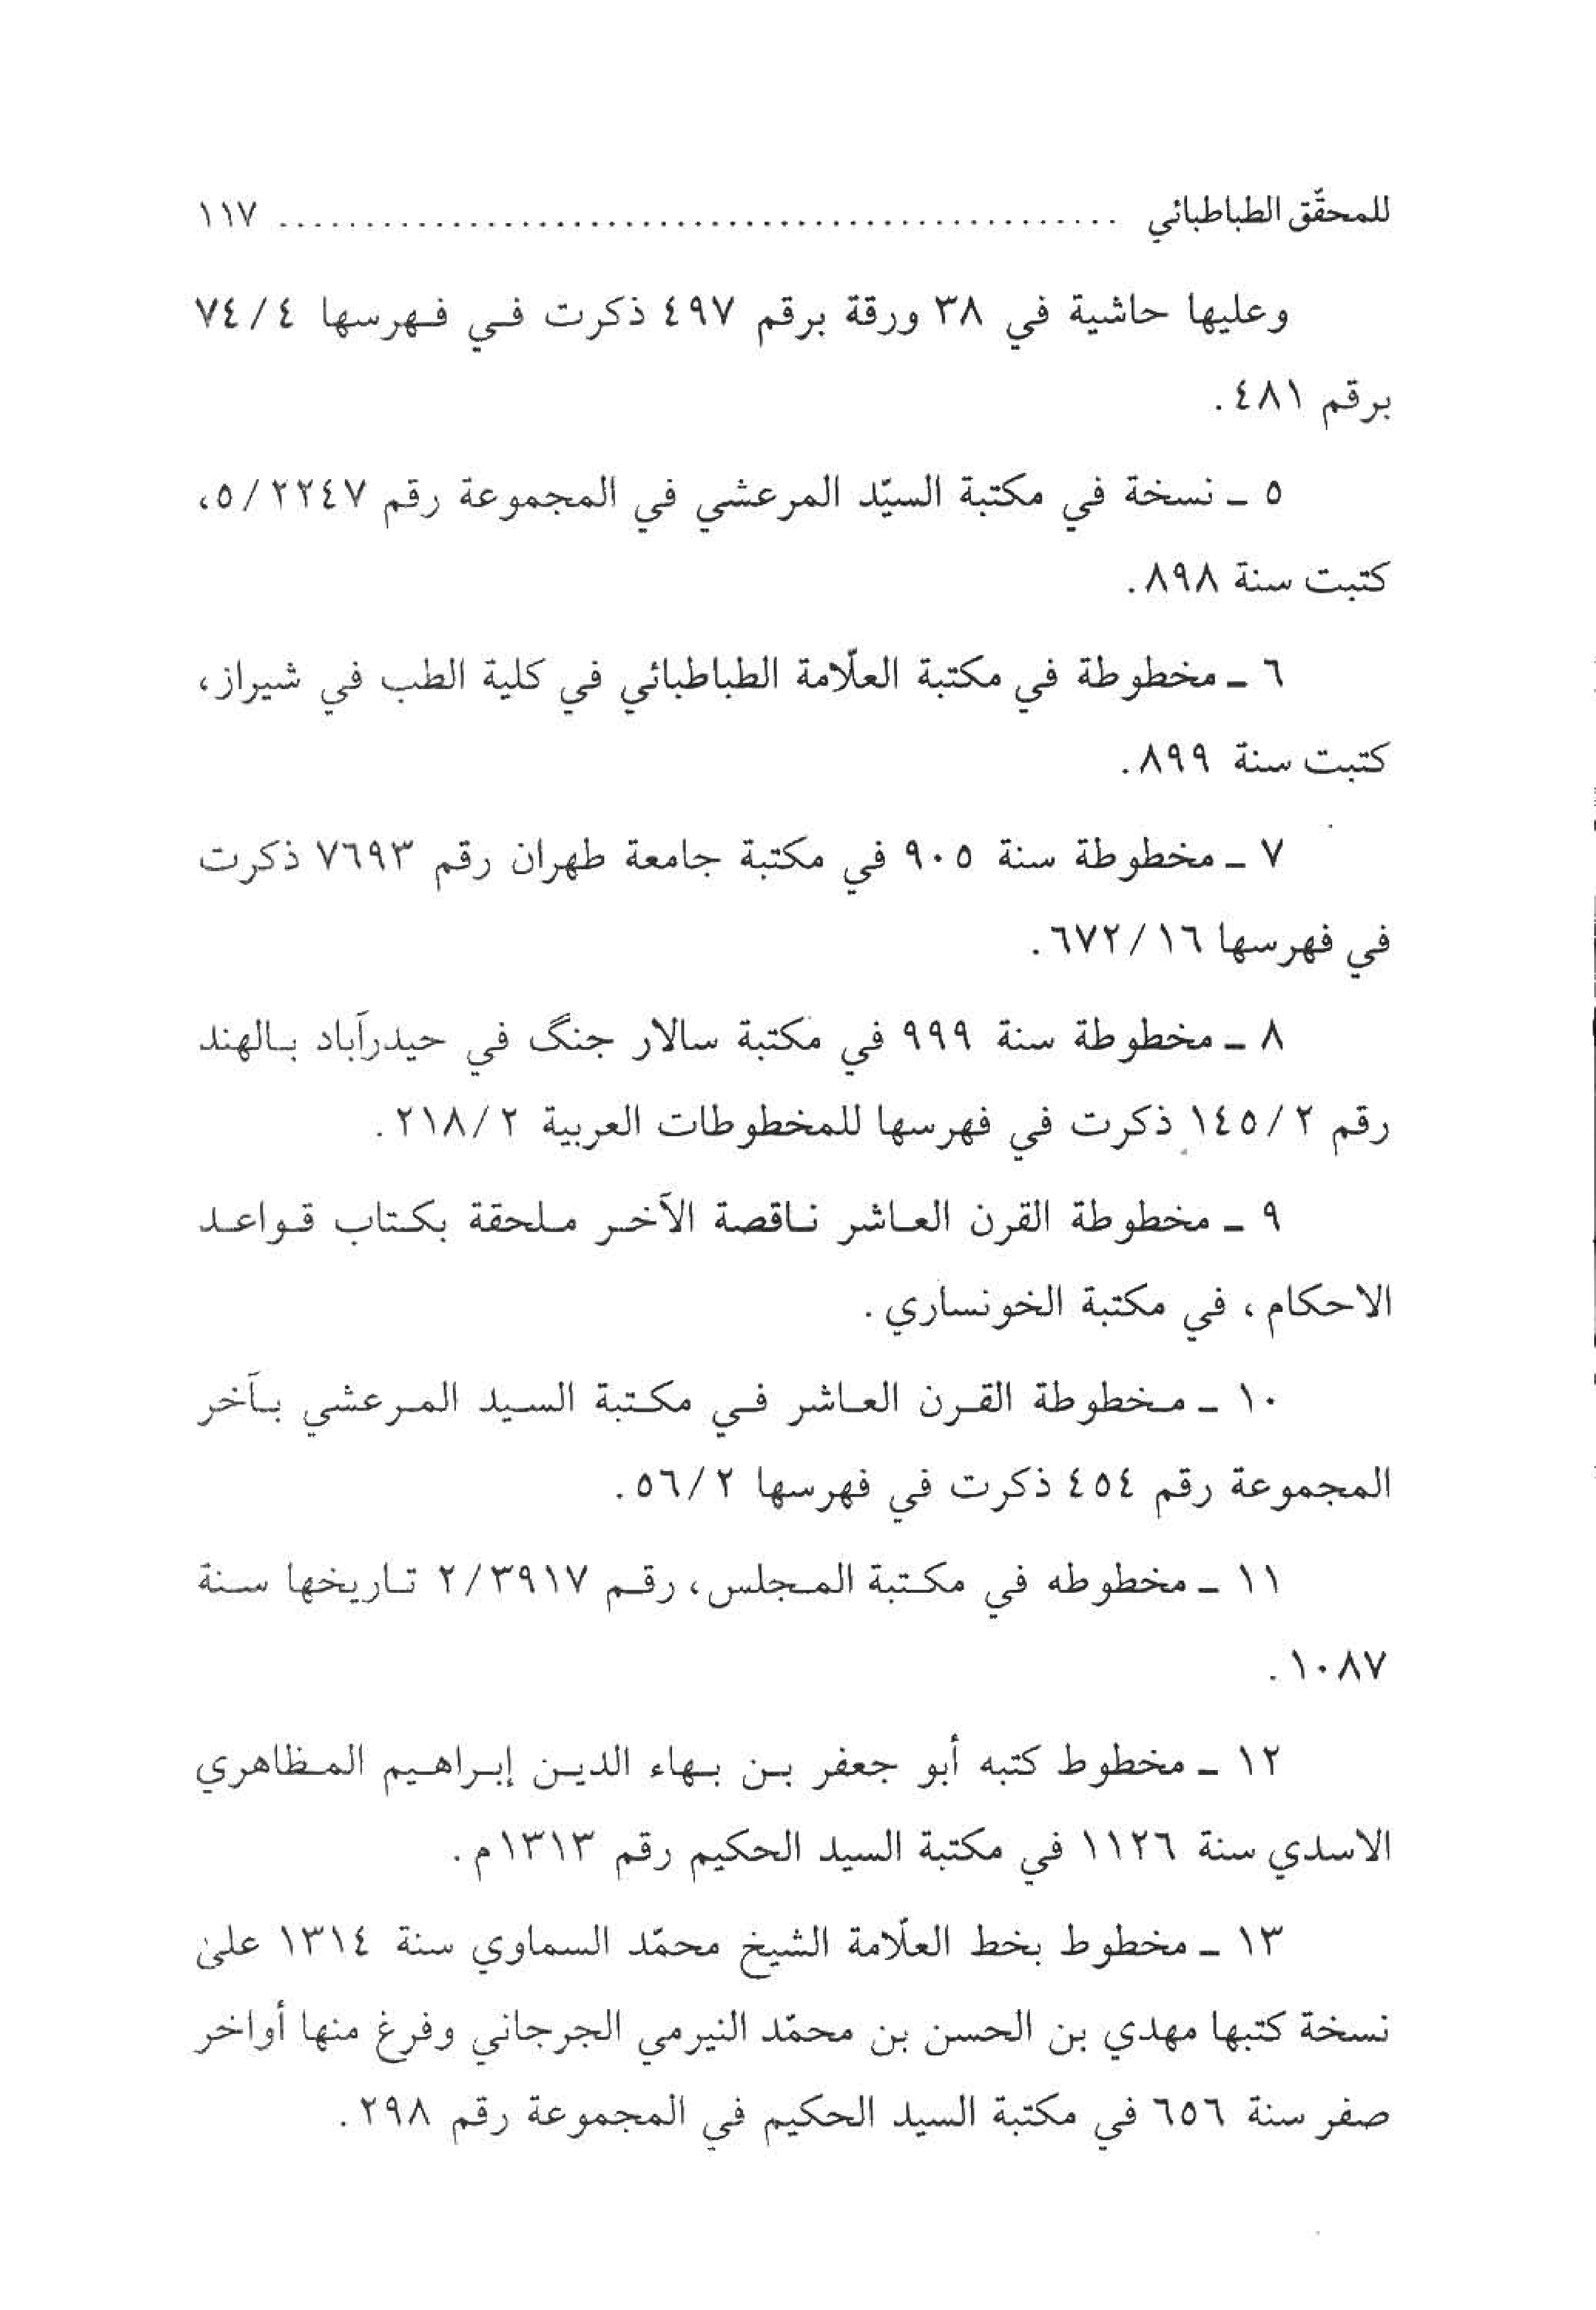 للمحقّق الطباطبائي ................................................ ١١٧
وعليها حاشية في ٣٨ ورقة برقم ٤٩٧ ذكرت في فهرسها ٧٤/٤
برقم ٤٨١ .
٥ ـ نسخة في مكتبة السيّد المرعشي في المجموعة رقم ٥/٢٢٤٧،
كتبت سنة ٨٩٨ .
٦ ـ مخطوطة في مكتبة العلّامة الطباطبائي في كلية الطب في شيراز،
كتبت سنة ٨٩٩ .
٧ ـ مخطوطة سنة ٩٠٥ في مكتبة جامعة طهران رقم ٧٦٩٣ ذكرت
في فهرسها ٦٧٢/١٦ .
٨ ـ مخطوطة سنة ٩٩٩ في مكتبة سالار جنگ في حيدرآباد بالهند
رقم ١٤٥/٢ ذكرت في فهرسها للمخطوطات العربية ٢١٨/٢ .
٩ ـ مخطوطة القرن العاشر ناقصة الآخر ملحقة بكتاب قواعد
الاحكام ، في مكتبة الخونساري .
١٠ ـ مخطوطة القرن العاشر في مكتبة السيد المرعشي بآخر
المجموعة رقم ٤٥٤ ذكرت في فهرسها ٥٦/٢ .
١١ ـ مخطوطه في مكتبة المجلس، رقم ٢/٣٩١٧ تاريخها سنة
١٠٨٧ .
١٢ ـ مخطوط كتبه أبو جعفر بن بهاء الدين إبراهيم المظاهري
الاسدي سنة ١١٢٦ في مكتبة السيد الحكيم رقم ١٣١٣م .
١٣ ـ مخطوط بخط العلّامة الشيخ محمّد السماوي سنة ١٣١٤ علىٰ
نسخة كتبها مهدي بن الحسن بن محمّد النيرمي الجرجاني وفرغ منها أواخر
صفر سنة ٦٥٦ في مكتبة السيد الحكيم في المجموعة رقم ٢٩٨ .